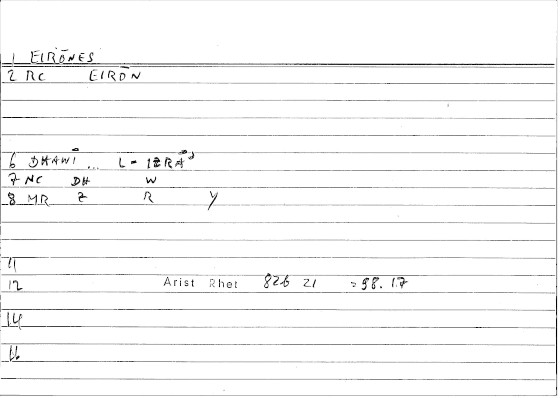 1 EIRŌNES
2 RC EIRŌN
6 DHAWĪ ... L-IZRĀʾ
7 NC DH W
8 MR Z R Y
11
12 Arist Rhet 826 21 = 98.17
14
16